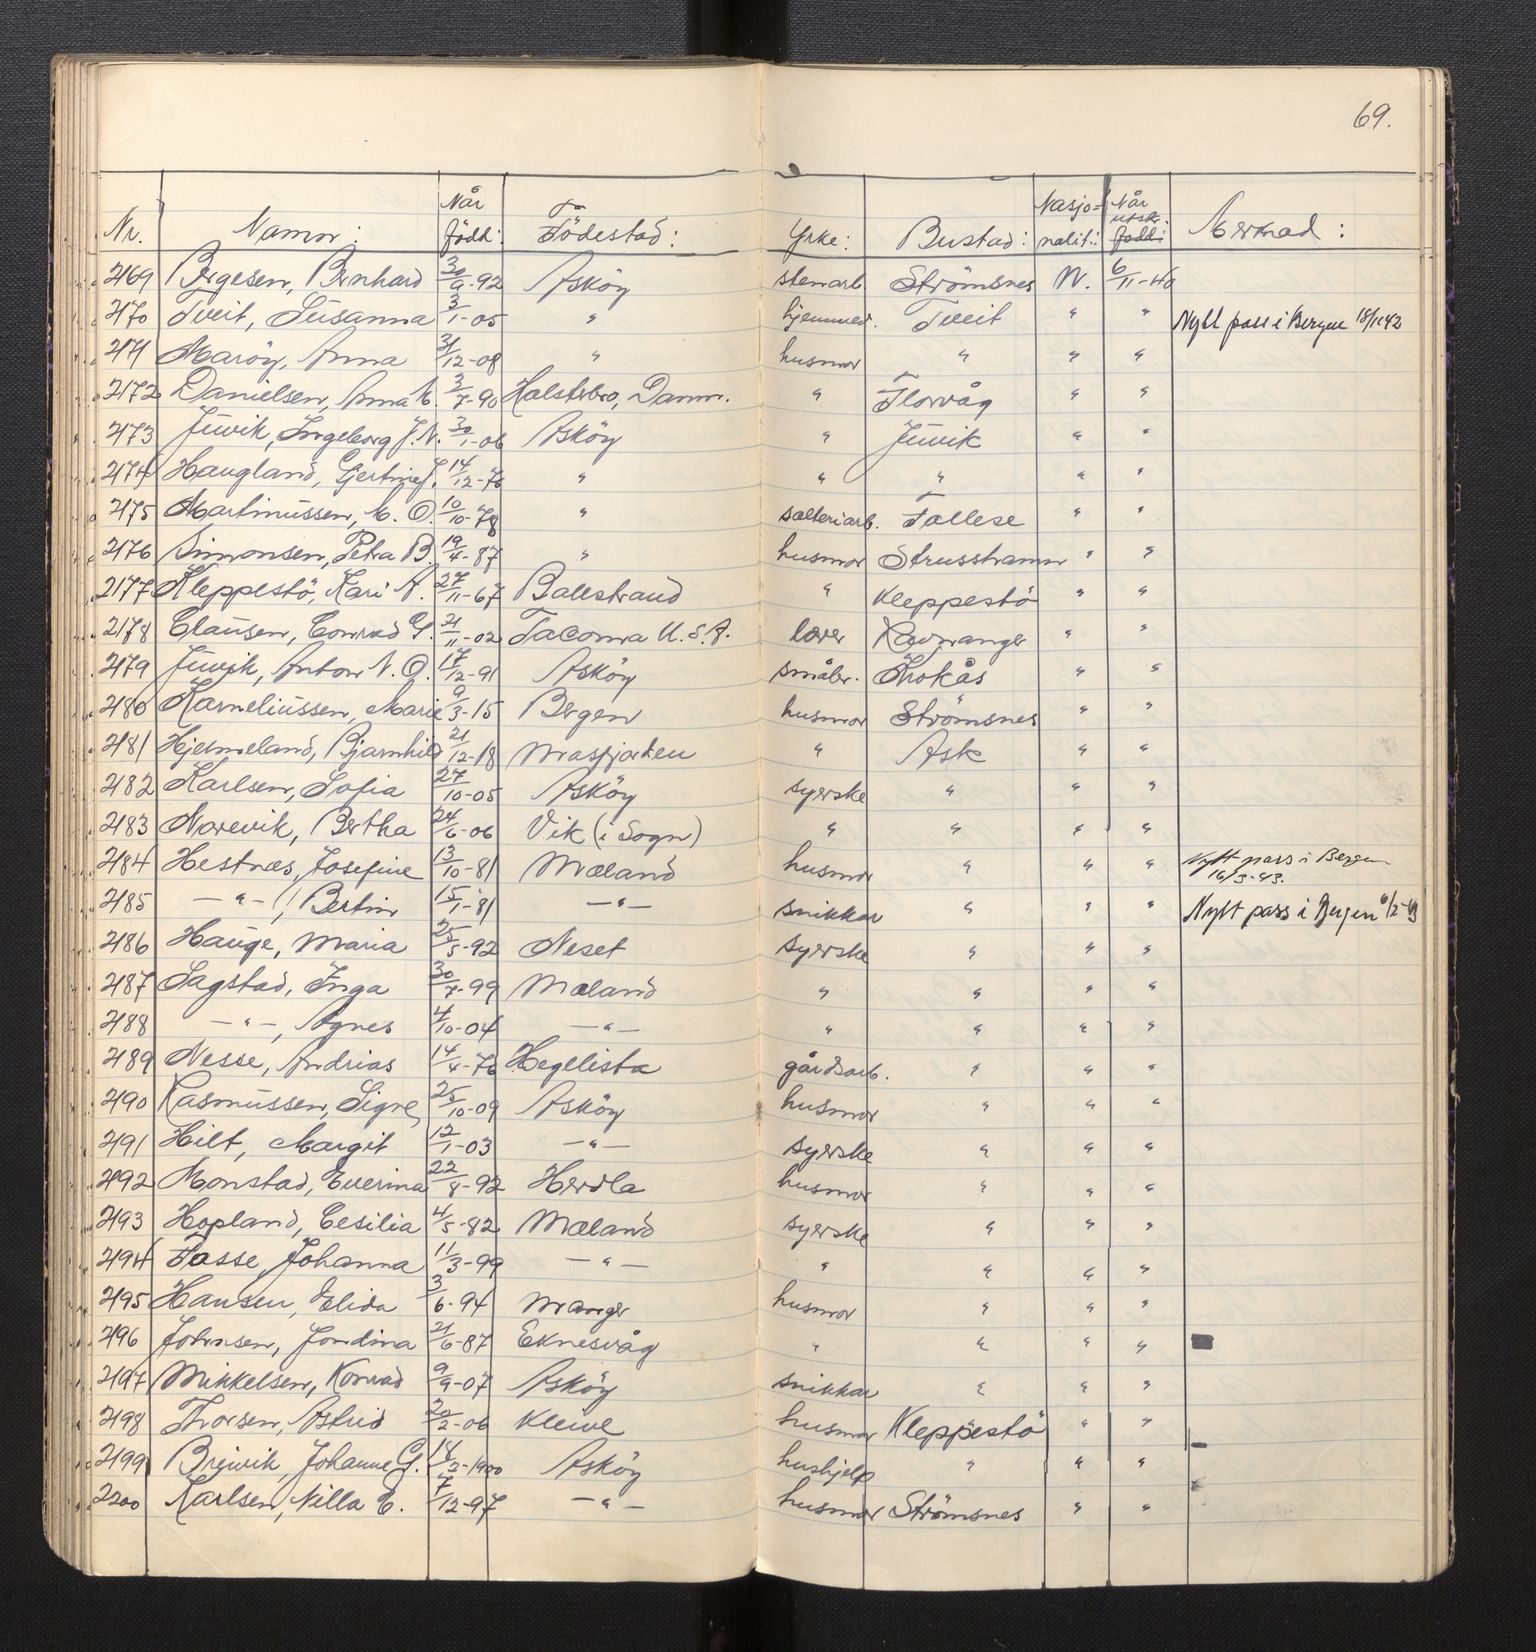 69.
Nr. Namn: Når född: Födestad: Yrke: Bustad: Nasjo-nalit.: Når utsk. född: Merknad:
2169 Bergesen, Bernhard 30/9-92 Asköy stenarb. Strömsnes N. 6/11-40
2170 Tveit, Susanna 3/1-05 " hjemmev. Tveit " " Nytt pass i Bergen 18/11 42
2171 Maröy, Anna 31/12-08 " husmor " " "
2172 Danielsen, Anna M. 3/7-90 Holstebro, Danm. " Florvåg " "
2173 Juvik, Ingeborg J. N. 30/1-06 Asköy " Juvik " "
2174 Haugland, Gjertine J. 14/12-76 " " " " "
2175 Martinussen, M. O. 10/10-78 " salteriarb. Follese " "
2176 Simonsen, Petra B. 19/4-87 " husmor Strusshamn " "
2177 Kleppestö, Kari A. 27/11-67 Balestrand " Kleppestö " "
2178 Clausen, Conrad G. 21/11-02 Tacoma U.S.A. lærer Ravnanger " "
2179 Juvik, Anton N. O. 17/12-91 Asköy småbr. Krokås " "
2180 Karneliussen, Marie 9/3-15 Bergen husmor Strömsnes " "
2181 Hjelmeland, Bjarnhild 21/12-18 Masfjorden " Ask " "
2182 Karlsen, Sofia 27/10-05 Asköy syerske " " "
2183 Norevik, Bertha 24/6-06 Vik (i Sogn) " " " "
2184 Hestnes, Josefine 13/10-81 Mæland husmor " " " Nytt pass i Bergen
16/3-43.
2185 — " —, Bertin 15/1-81 — " — snikkar " " " Nytt pass i Bergen 6/2-43
2186 Hauge, Maria 25/5-92 Neset syerske " " "
2187 Sagstad, Inga 30/7-99 Mæland " " " "
2188 — " —, Agnes 4/10-04 — " — " " " "
2189 Nesse, Andrias 14/4-76 Hegelista gårdsarb. " " "
2190 Rasmussen, Signe 25/10-09 Asköy husmor " " "
2191 Hilt, Margit 12/1-03 — " — syerske " " "
2192 Monstad, Everina 22/8-92 Herdla husmor " " "
2193 Hopland, Cesilia 4/5-82 Mæland syerske " " "
2194 Fosse, Johanna 11/3-99 — " — " " " "
2195 Hansen, Elida 3/6-94 Manger husmor " " "
2196 Johnsen, Jondina 21/6-87 Eknesvåg " " " "
2197 Mikkelsen, Konrad 9/9-07 Asköy snikkar " " "
2198 Thorsen, Astrid 20/2-06 Kleive husmor Kleppestö " "
2199 Breivik, Johanne G. 18/2-1900 Asköy hushjelp " " "
2200 Karlsen, Nilla E. 7/12-97 — " — husmor Strömsnes " "